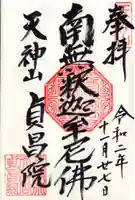 奉拝
令和二年
十一月廿七日
南無釈迦牟尼佛
天神山
貞昌院